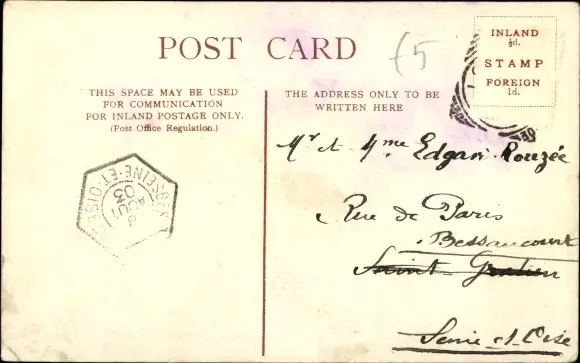 POST CARD
£5
INLAND
½d.
STAMP
FOREIGN
1d.
THIS SPACE MAY BE USED
FOR COMMUNICATION
FOR INLAND POSTAGE ONLY.
(Post Office Regulation.)
THE ADDRESS ONLY TO BE
WRITTEN HERE
Mr et Mme Edgar Rouzée
Rue de Paris
Bessancourt
Saint Gratien
Seine-et-Oise
SEINE-ET-OISE
8
AOUT
03